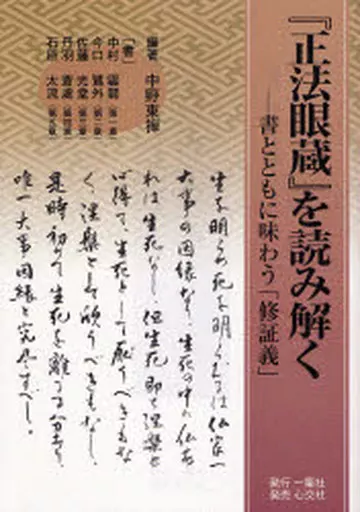 『正法眼蔵』を読み解く
――書とともに味わう「修証義」
発行 一葉社
発売 心交社
編著 中野東禅
[書]
中村
今口 鷺外
佐藤 光堂
丹羽 蒼處
石原 太流
生を明らめ死を明らむるは仏家一
大事の因縁なり、生死の中に仏あ
れば生死なし、但生死即ち涅槃と
心得て、生死として厭うべきもな
く、涅槃として欣うべきもなし、
是時初めて生死を離るる分あり、
唯一大事因縁と究尽すべし。